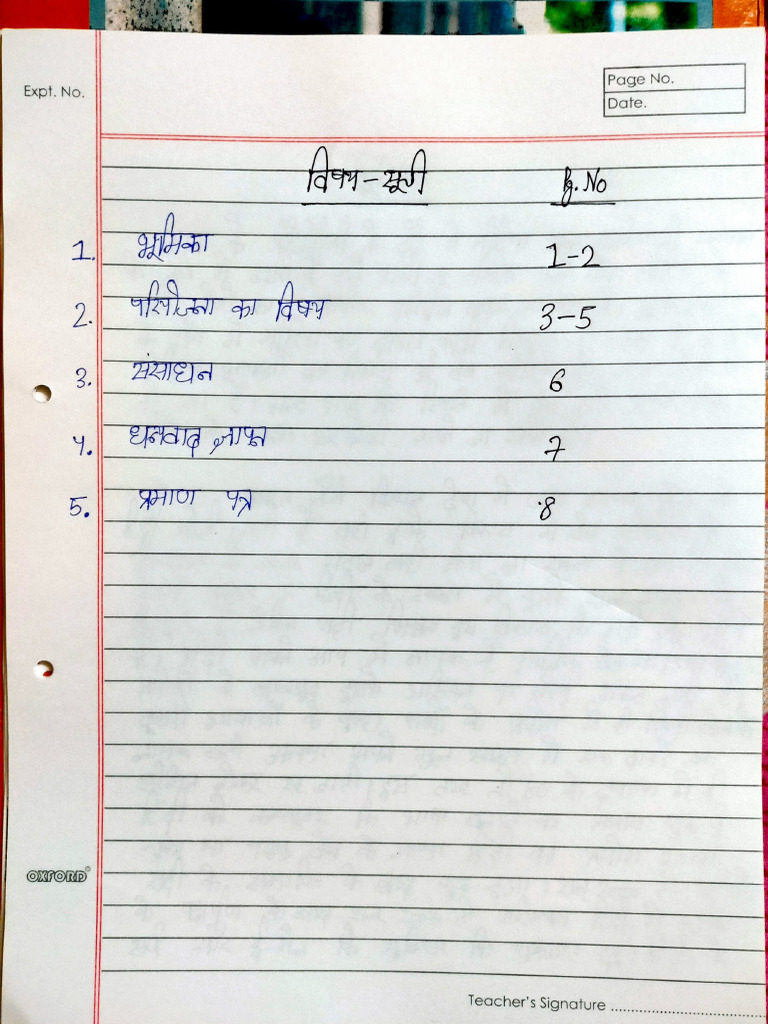 Expt. No.
Page No.
Date.
विषय-सूची Pg.No
1. भूमिका 1-2
2. परियोजना का विषय 3-5
3. संसाधन 6
4. धनवाद ज्ञापन 7
5. प्रमाण पत्र 8
OXFORD
Teacher's Signature